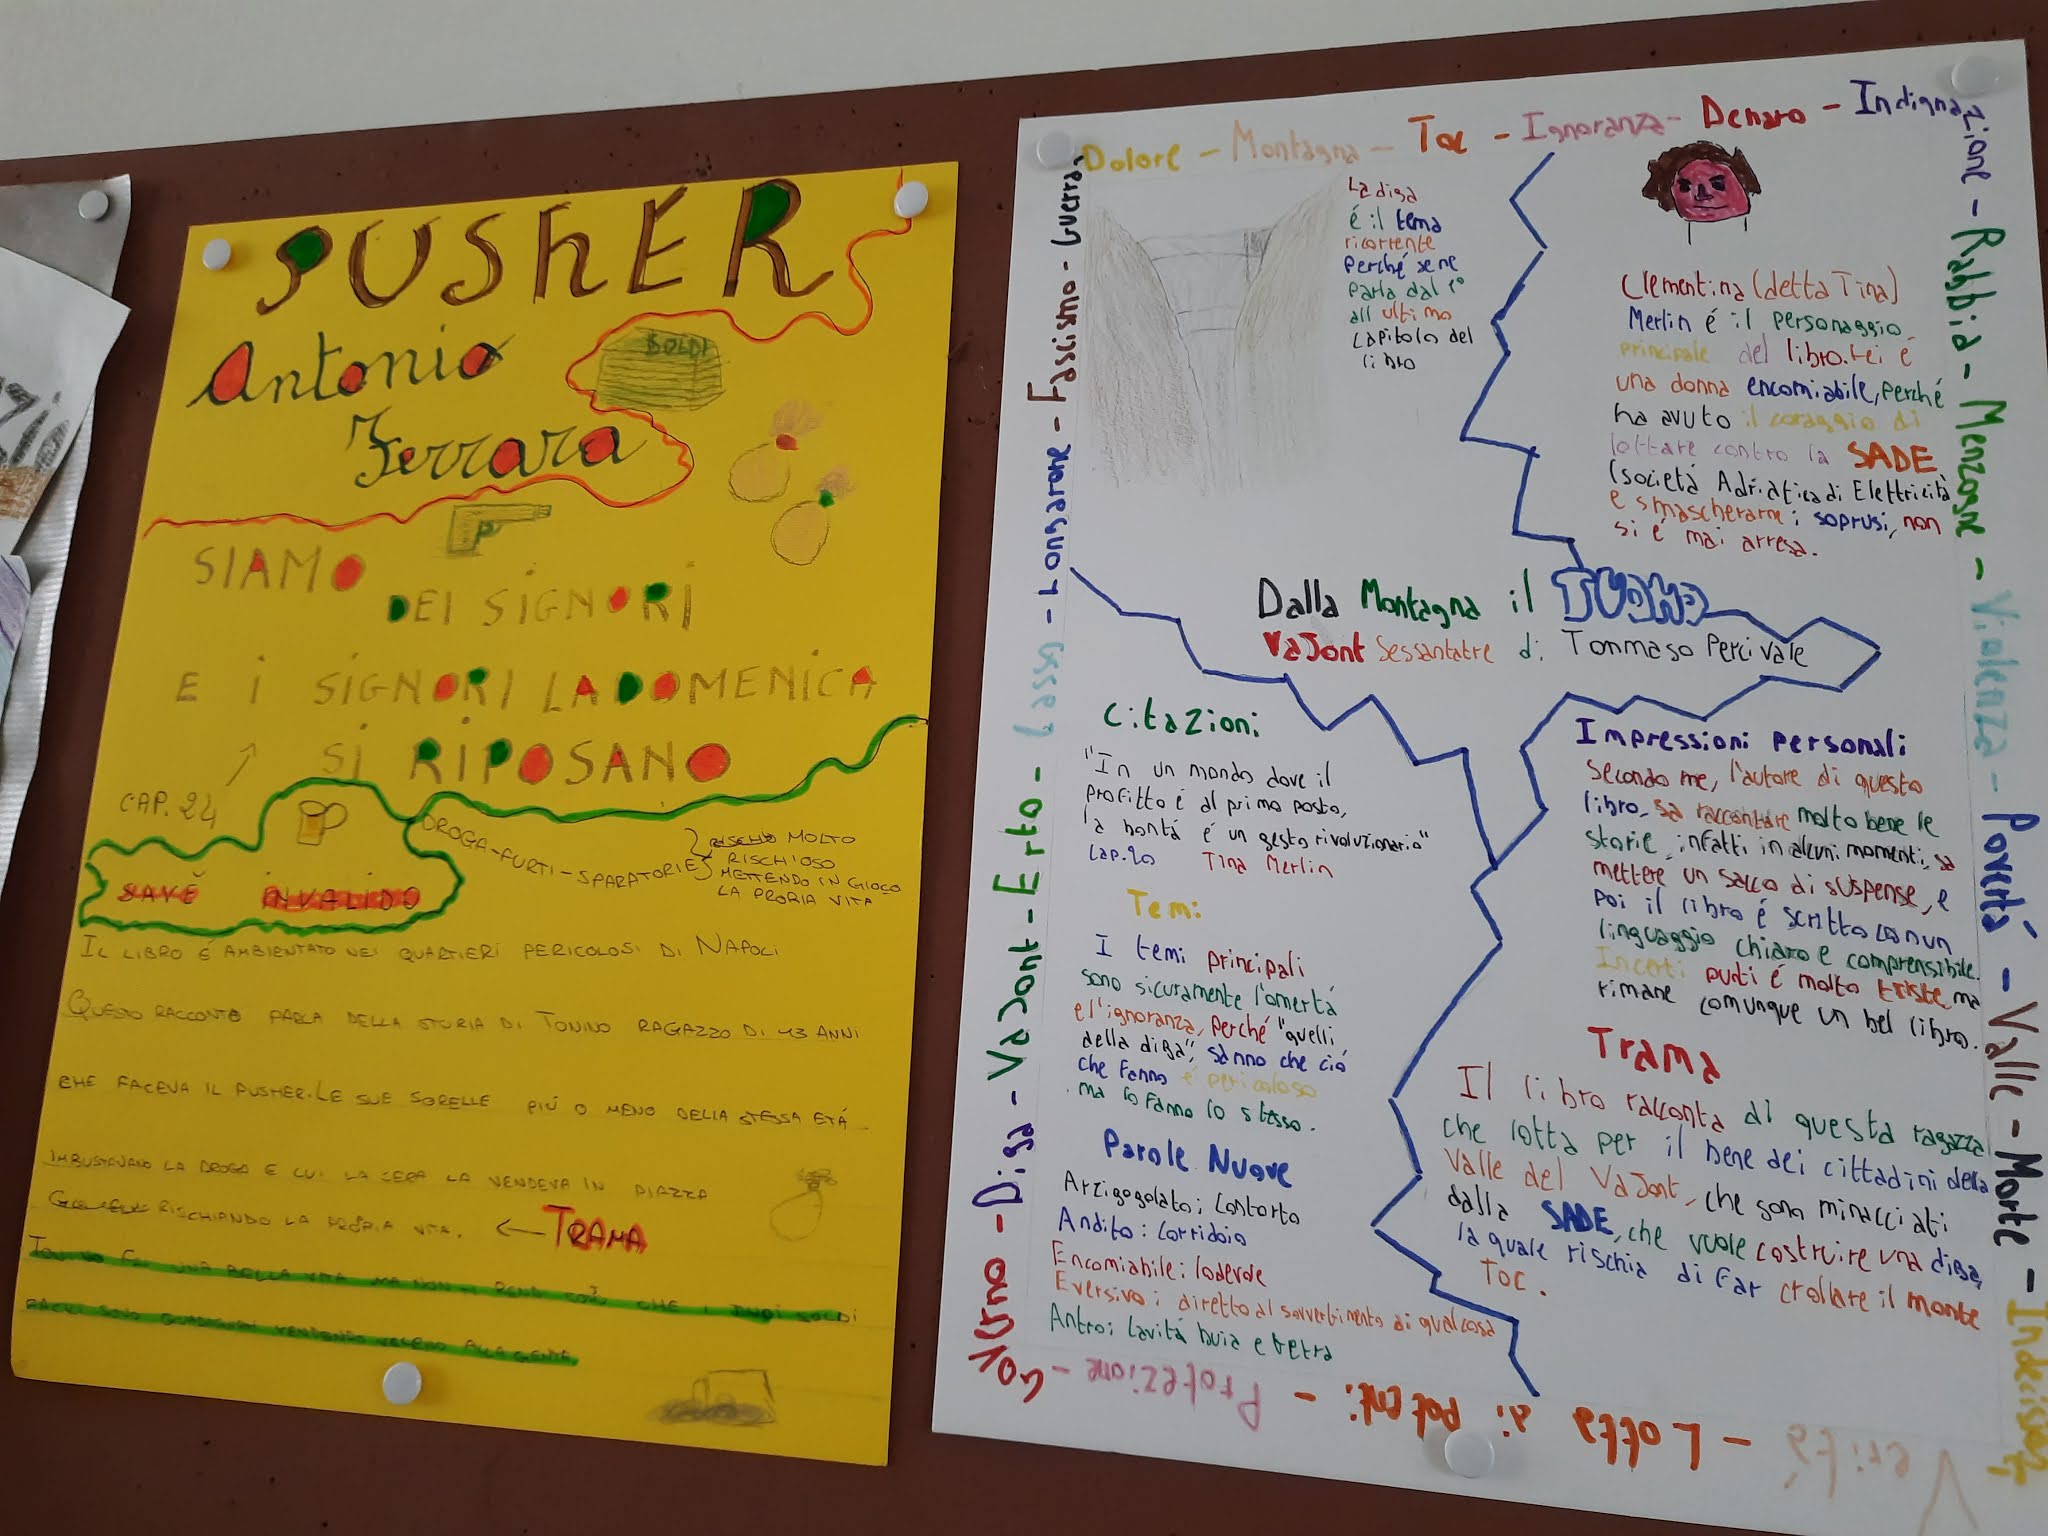 PUSHER
Antonio
Ferrara
SOLDI
SIAMO
DEI SIGNORI
E I SIGNORI LA DOMENICA
SI RIPOSANO
CAP. 24
DROGA-FURTI-SPARATORIE
MOLTO
RISCHIOSO
METTENDO IN GIOCO
LA PROPRIA VITA
SAVÈ INVALIDO
IL LIBRO É AMBIENTATO NEI QUARTIERI PERICOLOSI DI NAPOLI
QUESTO RACCONTO PARLA DELLA STORIA DI TONINO RAGAZZO DI 13 ANNI
CHE FACEVA IL PUSHER. LE SUE SORELLE PIÚ O MENO DELLA STESSA ETÁ
IMBUSTAVANO LA DROGA E LUI LA SERA LA VENDEVA IN PIAZZA
RISCHIANDO LA PROPRIA VITA. ← TRAMA
FA UNA BELLA VITA MA NON CHE I SUOI SOLDI
SONO VENDENDO VELENO ALLA GENTE
Dolore - Montagna - Toc - Ignoranza - Denaro - Indignazione - Rabbia - Menzogne - Violenza - Povertá - Valle - Morte -
Veritá
Lotta di potenti - Protezione -
Governo - Diga - Vajont - Erto -
- Longarone - Fascismo - Guerra
La diga
é il tema
ricorrente
perché se ne
parla dal 1°
all ultimo
capitolo del
libro
Clementina (detta Tina)
Merlin é il personaggio
principale del libro. Lei é
una donna encomiabile, perché
ha avuto il coraggio di
lottare contro la SADE
(società Adriatica di Elettricità
e smascherarne i soprusi, non
si é mai arresa.
Dalla Montagna il TUONO
VaJont Sessantatre di Tommaso Percivale
Citazioni
"In un mondo dove il
profitto é al primo posto,
la bontá é un gesto rivoluzionario"
Cap.20 Tina Merlin
Temi
I temi principali
sono sicuramente l'omertá
e l'ignoranza, perché "quelli
della diga", sanno che ció
che fanno é pericoloso
ma lo fanno lo stesso.
Parole Nuove
Arzigogolato: Contorto
Andito: corridoio
Encomiabile: lodevole
Eversivo: diretto al sovvertimento di qualcosa
Antro: Cavitá buia e tetra
Impressioni personali
Secondo me, l'autore di questo
libro, sa raccontare molto bene le
storie, infatti in alcuni momenti, sa
mettere un sacco di suspense, e
poi il libro é scritto con un
linguaggio chiaro e comprensibile.
In certi punti é molto triste, ma
rimane comunque un bel libro.
Trama
Il libro racconta di questa ragazza
che lotta per il bene dei cittadini della
Valle del VaJont, che sono minacciati
dalla SADE, che vuole costruire una diga,
la quale rischia di far crollare il monte
Toc.